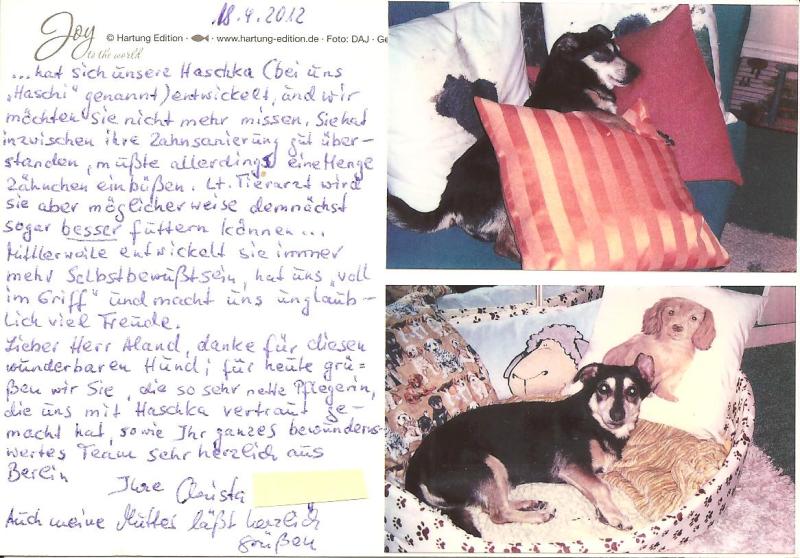 18.4.2012
Joy
to the world
© Hartung Edition · www.hartung-edition.de · Foto: DAJ · Ge
...hat sich unsere Haschka (bei uns
„Haschi" genannt) entwickelt, und wir
möchten sie nicht mehr missen. Sie hat
inzwischen ihre Zahnsanierung gut über-
standen, müßte allerdings eine Menge
Zähnchen einbüßen. Lt. Tierarzt wird
sie aber möglicherweise demnächst
sogar besser füttern können...
Mittlerweile entwickelt sie immer
mehr Selbstbewußtsein, hat uns „voll
im Griff" und macht uns unglaub-
lich viel Freude.
Lieber Herr Aland, danke für diesen
wunderbaren Hund; für heute grü=
ßen wir Sie, die so sehr nette Pflegerin,
die uns mit Haschka vertraut ge-
macht hat, sowie Ihr ganzes bewunderns-
wertes Team sehr herzlich aus
Berlin
Ihre Christa
Auch meine Mutter läßt herzlich
grüßen